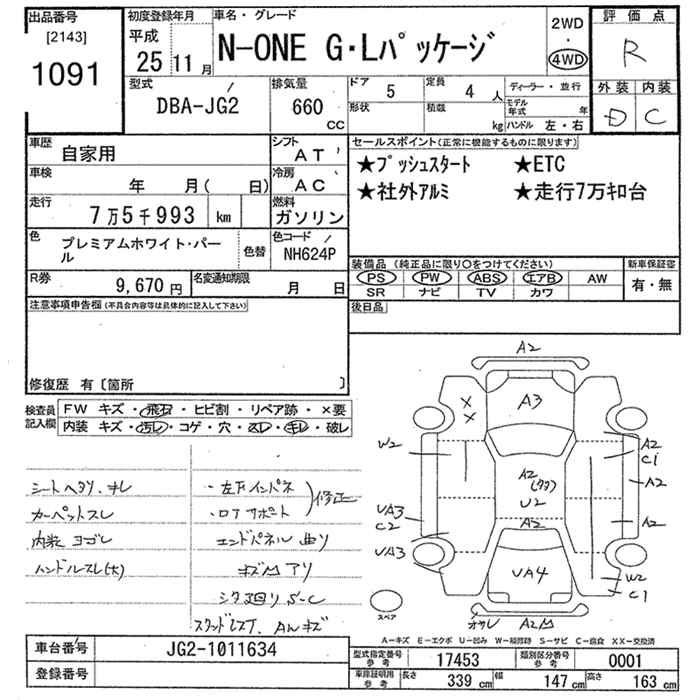 出品番号
[2143]
1091
初度登録年月
平成
25 11月
車名・グレード
N-ONE G・Lパッケージ
2WD
・
4WD
評価点
R
外装 内装
D C
型式
DBA-JG2
排気量
660
CC
ドア
5
定員
4 人
形状
積載
kg
ディーラー・並行
モデル年式 年
ハンドル 左・右
車歴
自家用
シフト
AT
車検
年 月( 日)
冷房
AC
走行
7万5千993 km
燃料
ガソリン
色
プレミアムホワイト・パール
色替
色コード
NH624P
R券
9,670円
名変通知期限
月 日
セールスポイント(正常に機能するものに限ります)
★プッシュスタート ★ETC
★社外アルミ ★走行7万キロ台
装備品 (純正品に限り○をつけてください)
PS PW ABS エアB AW
SR ナビ TV カワ
新車保証書
有・無
後日品
注意事項申告欄(不具合内容等は具体的に記入して下さい)
修復歴 有〔箇所 〕
検査員記入欄
FW キズ・飛石・ヒビ割・リペア跡・×要
内装 キズ・汚レ・コゲ・穴・スレ・キレ・破レ
シートヘタリ、キレ
カーペットスレ
内装ヨゴレ
ハンドルスレ(大)
・左下インパネ
・ロアサポート
修正
エンドパネル曲り
キズ凹アリ
シタ回りS-C
スタッドレスT、AWキズ
A2
A3
W2
A2
C1
A2
A2
(タタ)
U2
A2
UA3
C2
UA3
A2
UA4
W2
C1
オサレ
A2凹
スペア
A-キズ E-エクボ U-凹み W-補修跡 S-サビ C-腐食 XX-交換済
車台番号
JG2-1011634
登録番号
型式指定番号
参考
17453
類別区分番号
参考
0001
車庫証明用
参考
長さ 339cm 幅 147cm 高さ 163cm